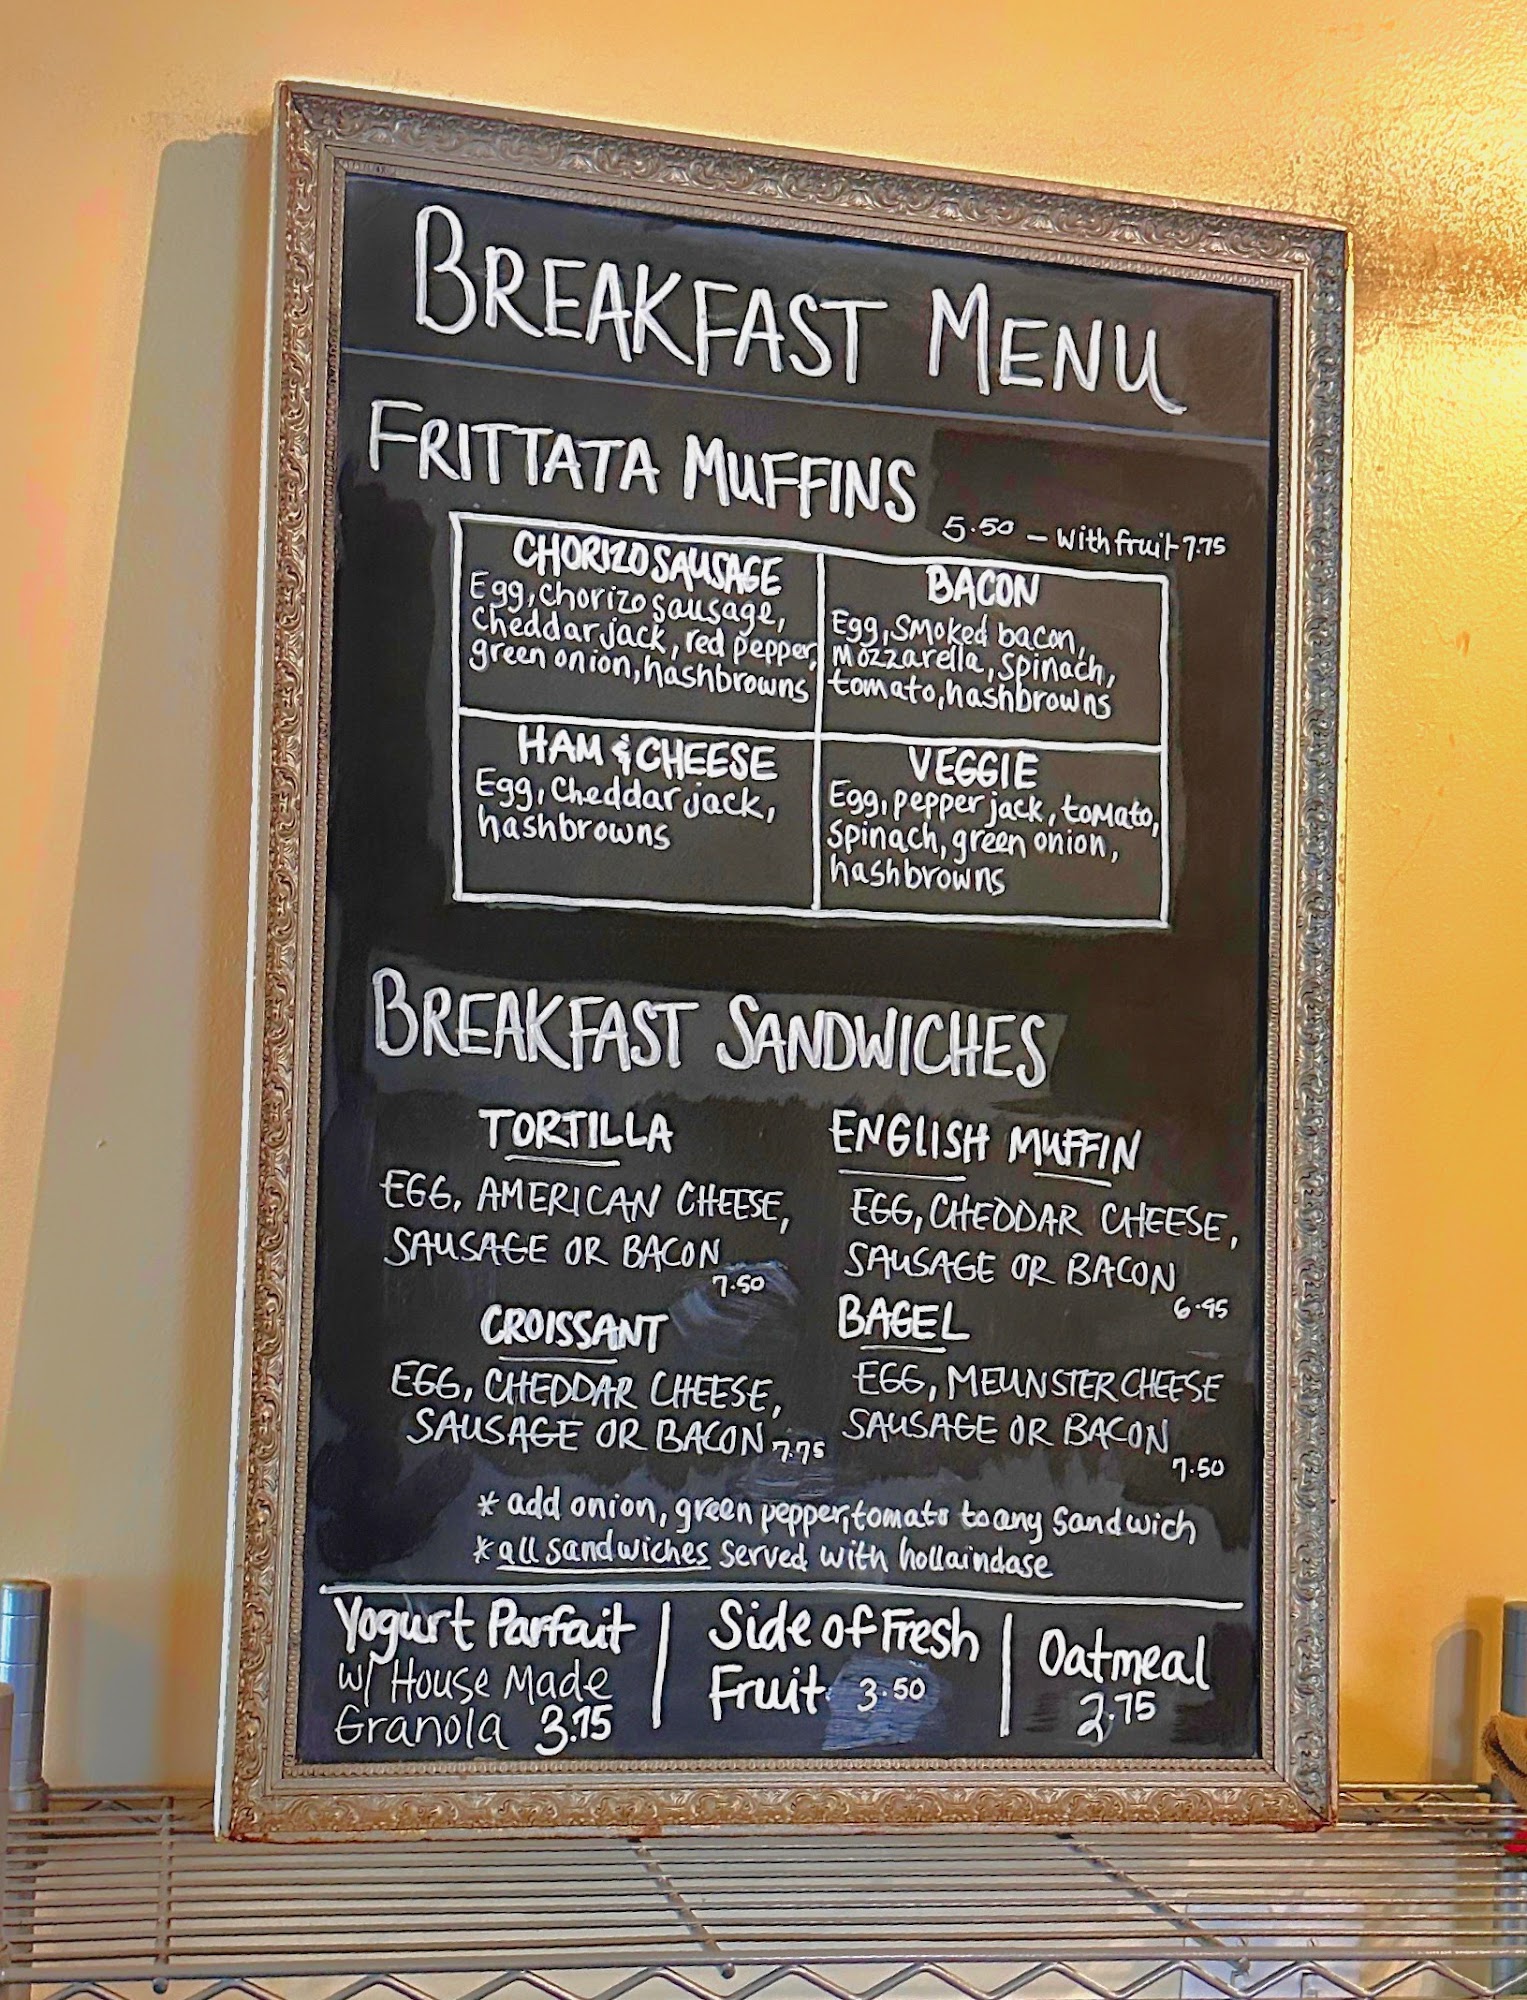 BREAKFAST MENU
FRITTATA MUFFINS
5.50 - with fruit 7.75
CHORIZO SAUSAGE
Egg, chorizo sausage,
cheddar jack, red pepper,
green onion, hashbrowns
BACON
Egg, smoked bacon,
mozzarella, spinach,
tomato, hashbrowns
HAM & CHEESE
Egg, cheddar jack,
hashbrowns
VEGGIE
Egg, pepper jack, tomato,
spinach, green onion,
hashbrowns
BREAKFAST SANDWICHES
TORTILLA
EGG, AMERICAN CHEESE,
SAUSAGE OR BACON
7.50
ENGLISH MUFFIN
EGG, CHEDDAR CHEESE,
SAUSAGE OR BACON
6.95
CROISSANT
EGG, CHEDDAR CHEESE,
SAUSAGE OR BACON 7.75
BAGEL
EGG, MEUNSTER CHEESE
SAUSAGE OR BACON
7.50
* add onion, green pepper, tomato to any sandwich
* all sandwiches served with hollaindase
Yogurt Parfait
w/ House Made
Granola 3.75
Side of Fresh
Fruit 3.50
Oatmeal
2.75